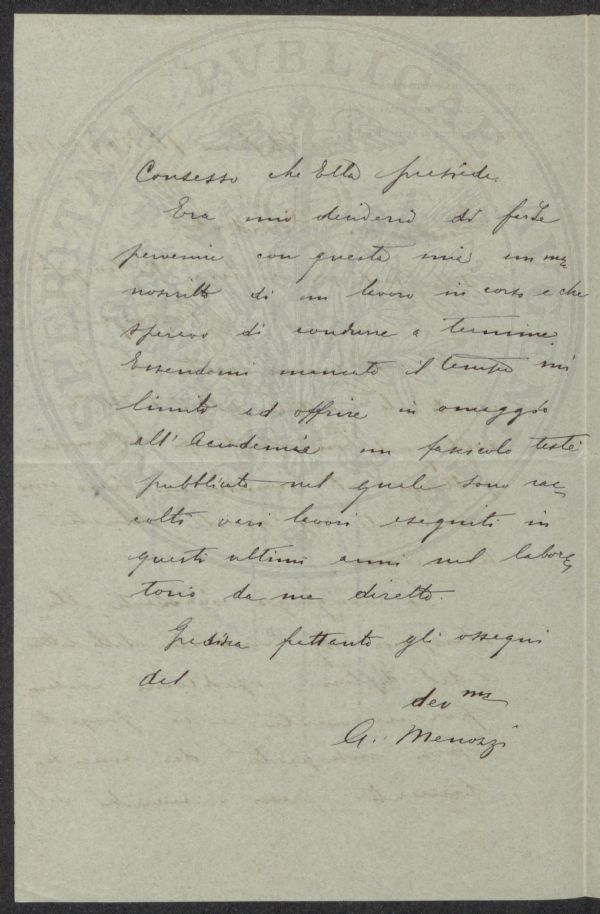 PVBLICAE VTILITATI
Consesso che Ella presiede.
Era mio desiderio di farLe
pervenire con questa mia un ma-
noscritto di un lavoro in corso e che
speravo di condurre a termine
Essendomi mancato il tempo mi
limito ad offrire in omaggio
all'Accademia un fascicolo testè
pubblicato nel quale sono rac-
colti vari lavori eseguiti in
questi ultimi anni nel labora-
torio da me diretto.
Gradisca pertanto gli ossequi
del
dev mo
A. Menozzi